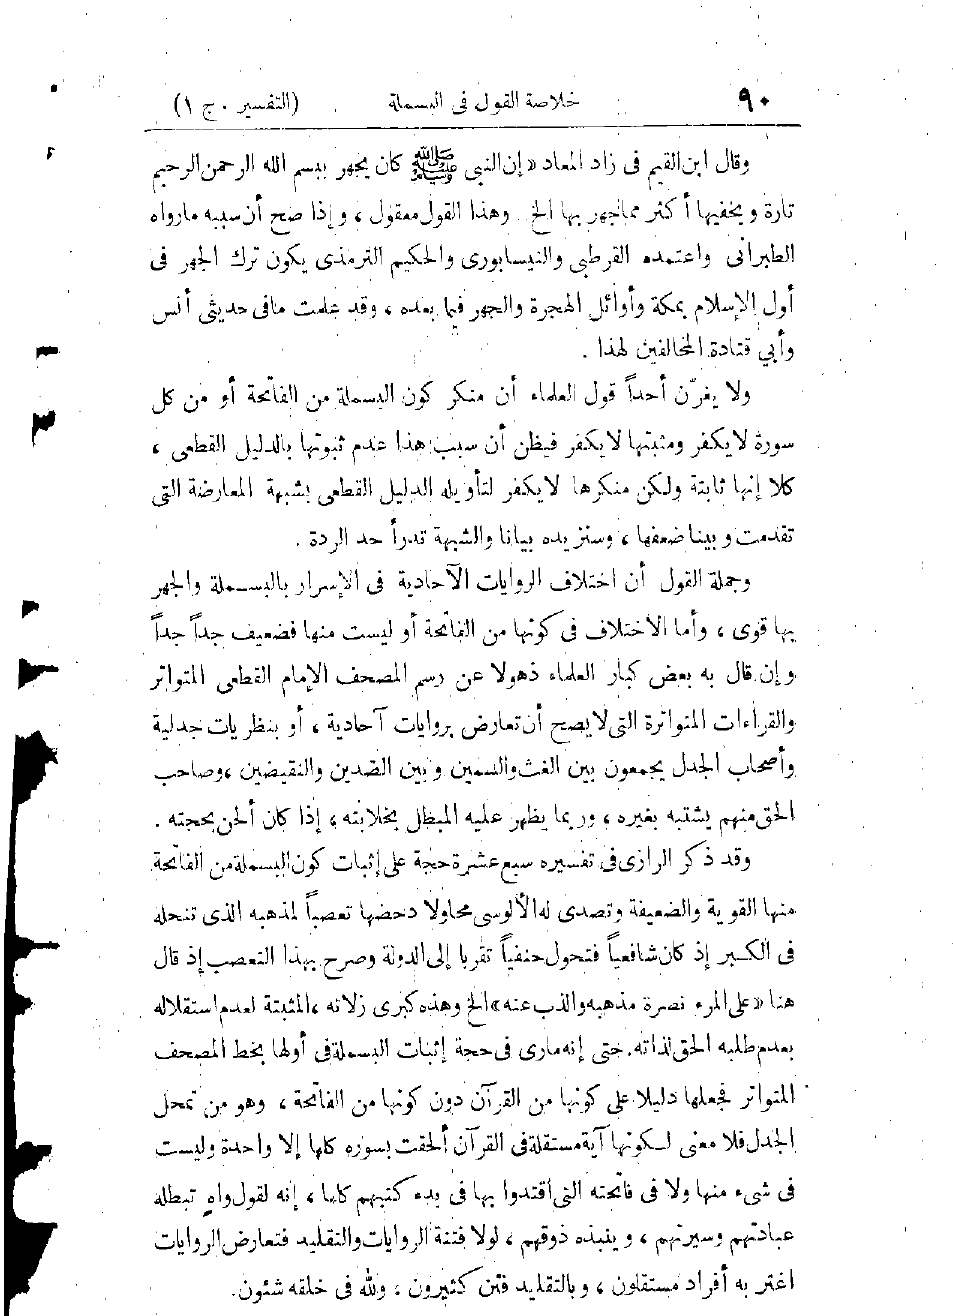 ٩٠ خلاصة القول فى البسملة (التفسير . ج ١)
وقال ابن القيم فى زاد المعاد «إن النبى ﷺ كان يجهر ببسم الله الرحمن الرحيم
تارة ويخفيها أكثر مما جهر بها الخ وهذا القول معقول ، وإذا صح أن سببه مارواه
الطبرانى واعتمده القرطبى والنيسابورى والحكيم الترمذى يكون ترك الجهر فى
أول الإسلام بمكة وأوائل الهجرة والجهر فيما بعده ، وقد علمت مافى حديثى أنس
وأبي قتادة المخالفين لهذا .
ولا يغرّن أحداً قول العلماء أن منكر كون البسملة من الفاتحة أو من كل
سورة لا يكفر ومثبتها لا يكفر فيظن أن سبب هذا عدم ثبوتها بالدليل القطعى ،
كلا إنها ثابتة ولكن منكرها لا يكفر لتأويله الدليل القطعى بشبهة المعارضة التى
تقدمت وبينا ضعفها ، وسنزيده بيانا والشبهة تدرأ حد الردة .
وجملة القول أن اختلاف الروايات الآحادية فى الإسرار بالبسملة والجهر
بها قوى ، وأما الاختلاف فى كونها من الفاتحة أو ليست منها فضعيف جداً جداً
وإن قال به بعض كبار العلماء ذهولا عن رسم المصحف الإمام القطعى المتواتر
والقراءات المتواترة التى لا يصح أن تعارض بروايات آحادية ، أو بنظريات جدلية
وأصحاب الجدل يجمعون بين الغث والسمين وبين الضدين والنقيضين ، وصاحب
الحق منهم يشتبه بغيره ، وربما يظهر عليه المبطل بخلابته ، إذا كان ألحن بحجته .
وقد ذكر الرازى فى تفسيره سبع عشرة حجة على إثبات كون البسملة من الفاتحة
منها القوية والضعيفة وتصدى له الألوسى محاولا دحضها تعصباً لمذهبه الذى تنحله
فى الكبر إذ كان شافعياً فتحول حنفياً تقربا إلى الدولة وصرح بهذا التعصب إذ قال
هنا «على المرء نصرة مذهبه والذب عنه» الخ وهذه كبرى زلاته ، المثبتة لعدم استقلاله
بعدم طلبه الحق لذاته. حتى إنه مارى فى حجة إثبات البسملة فى أولها بخط المصحف
المتواتر فجعلها دليلا على كونها من القرآن دون كونها من الفاتحة ، وهو من تمحل
الجدل فلا معنى لكونها آية مستقلة فى القرآن ألحقت بسوره كلها إلا واحدة وليست
فى شىء منها ولا فى فاتحته التى اقتدوا بها فى بدء كتبهم كلها ، إنه لقول واهٍ تبطله
عبادتهم وسيرتهم ، وينبذه ذوقهم ، لولا فتنة الروايات والتقليد فتعارض الروايات
اغتر به أفراد مستقلون ، وبالتقليد فتن كثيرون ، ولله فى خلقه شئون.